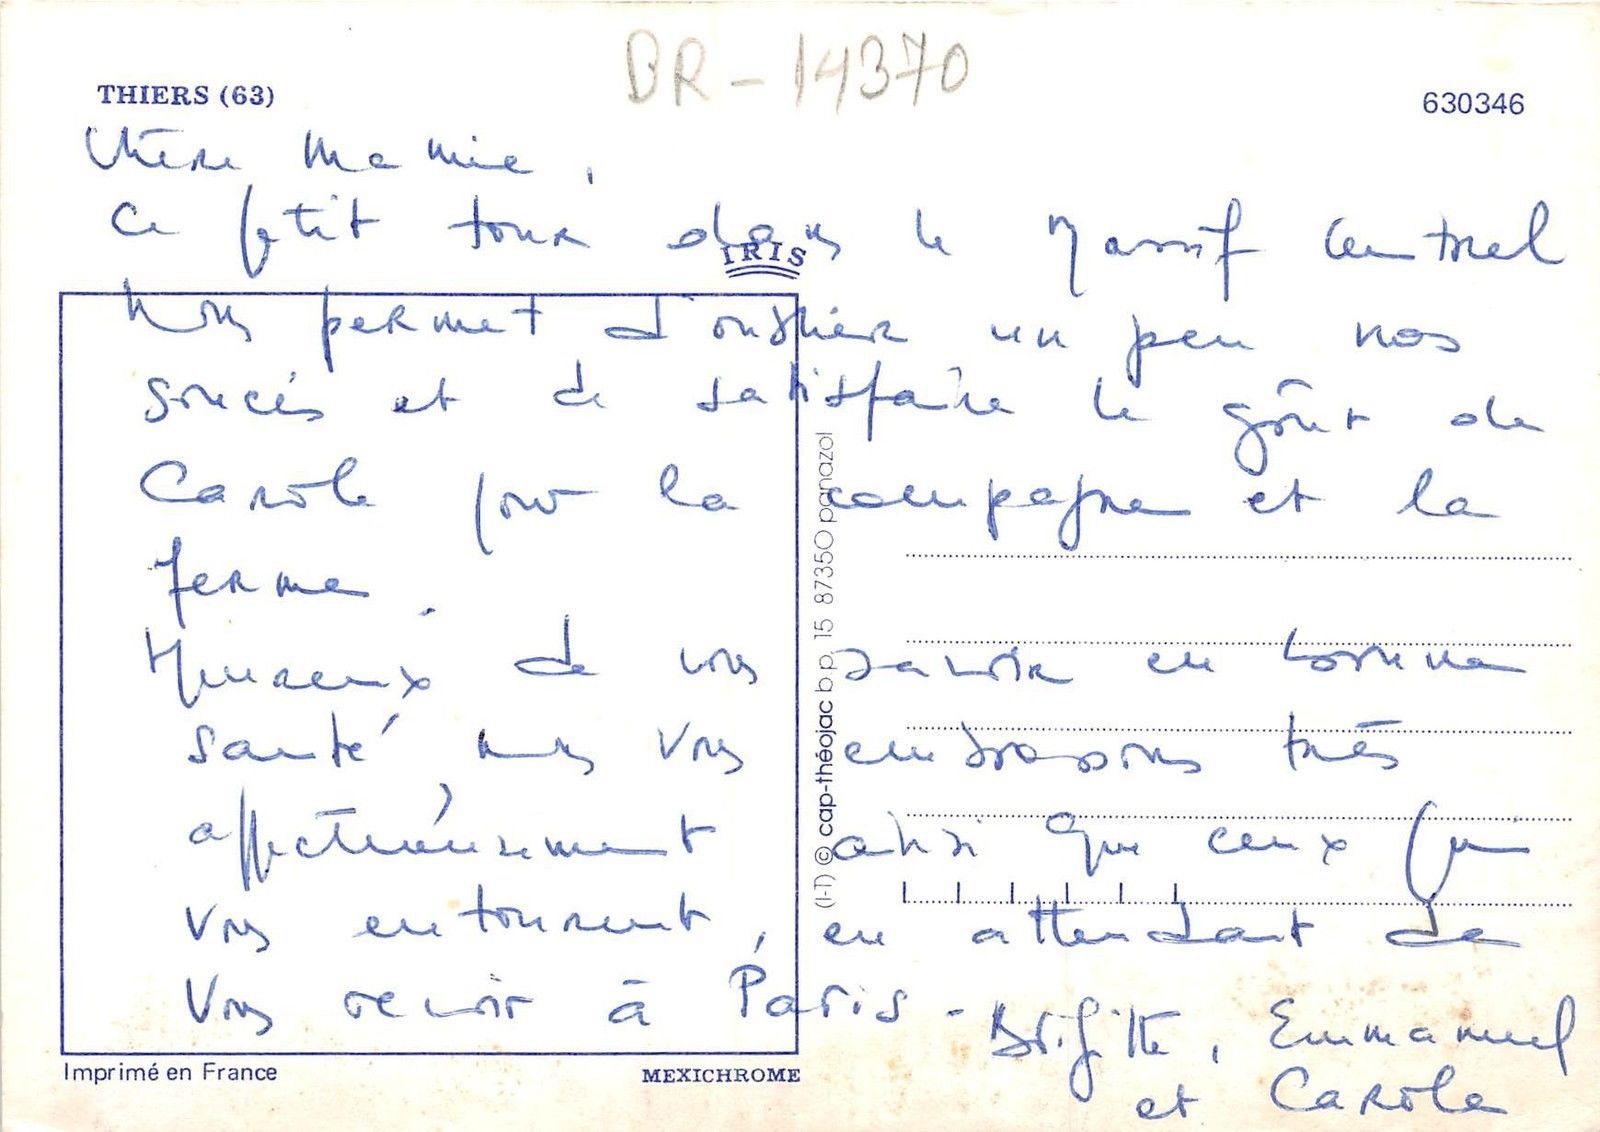 BR-14370
THIERS (63)
630346
Chère Mamie,
Ce petit tour dans le Massif Central
IRIS
nous permet d'oublier un peu nos
soucis et de satisfaire le goût de
Carole pour la campagne et la
ferme.
Heureux de vous savoir en bonne
santé, nous vous embrassons très
affectueusement ainsi que ceux qui
vous entourent, en attendant de
vous revoir à Paris - Brigitte, Emmanuel
et Carole
(I-T) © cap-théojac b.p. 15 87350 panazol
Imprimé en France
MEXICHROME